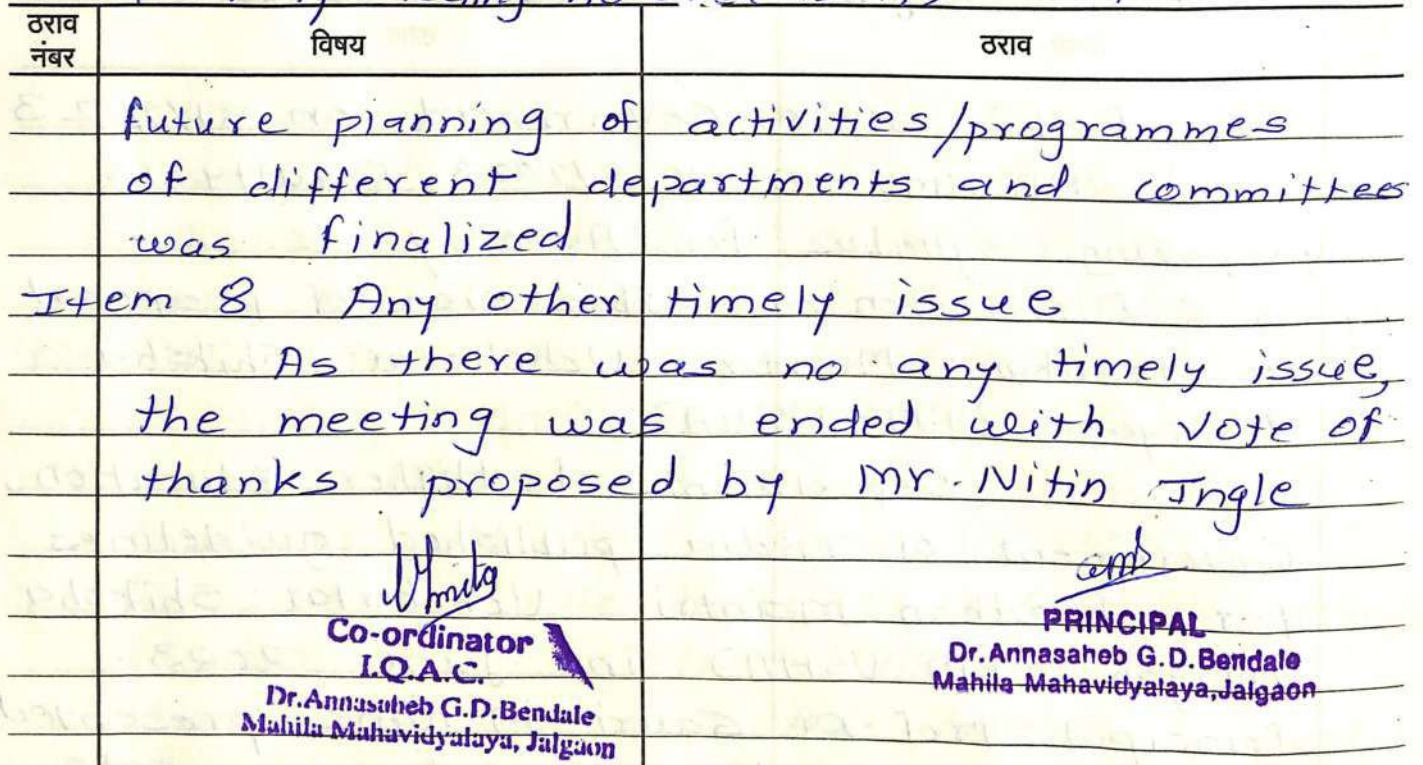 ठराव नंबर विषय ठराव
future planning of activities/programmes
of different departments and committees
was finalized
Item 8 Any other timely issue
As there was no any timely issue,
the meeting was ended with vote of
thanks proposed by Mr. Nitin Ingle
Co-ordinator
I.Q.A.C.
Dr.Annasaheb G.D.Bendale
Mahila Mahavidyalaya, Jalgaon
PRINCIPAL
Dr.Annasaheb G.D.Bendale
Mahila Mahavidyalaya,Jalgaon